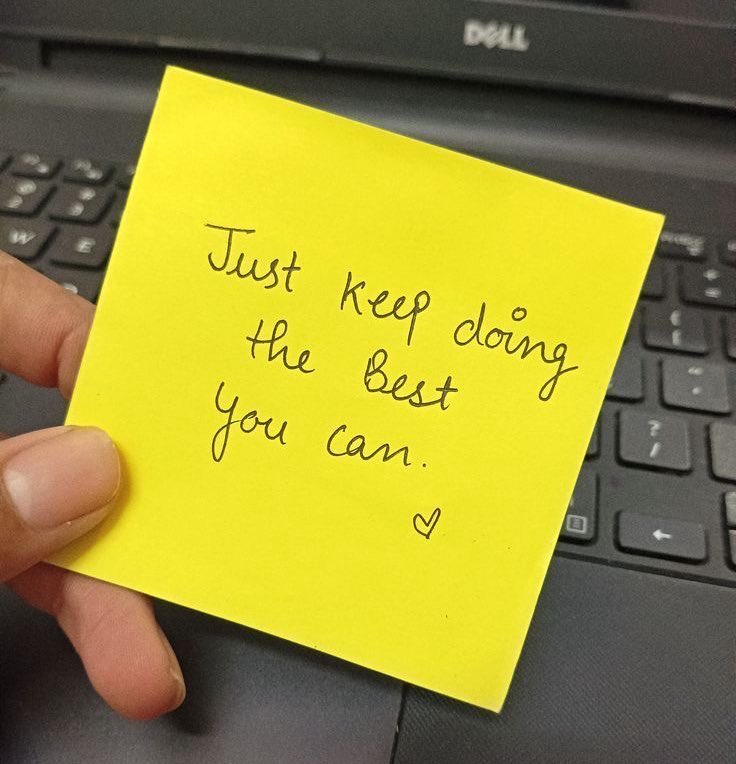 DELL
Just keep doing
the Best
You can.
♡
W E
? /
←